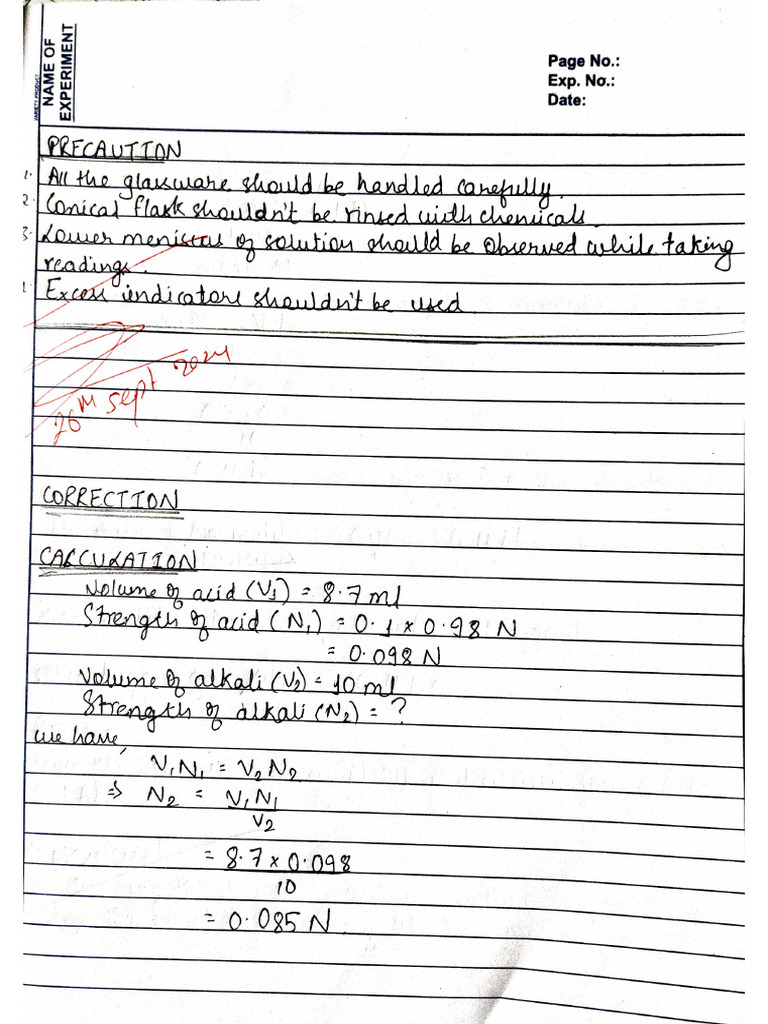 NAME OF
EXPERIMENT
Page No.:
Exp. No.:
Date:
PRECAUTION
1. All the glassware should be handled carefully.
2. Conical flask shouldn't be rinsed with chemicals.
3. Lower meniscus of solution should be observed while taking
readings.
Excess indicators shouldn't be used.
26th Sept 2024
CORRECTION
CALCULATION
Volume of acid (V₁) = 8.7 ml
Strength of acid (N₁) = 0.1 × 0.98 N
= 0.098 N
Volume of alkali (V₂) = 10 ml
Strength of alkali (N₂) = ?
we have,
V₁N₁ = V₂N₂
⇒ N₂ = V₁N₁
V₂
= 8.7 × 0.098
10
= 0.085 N